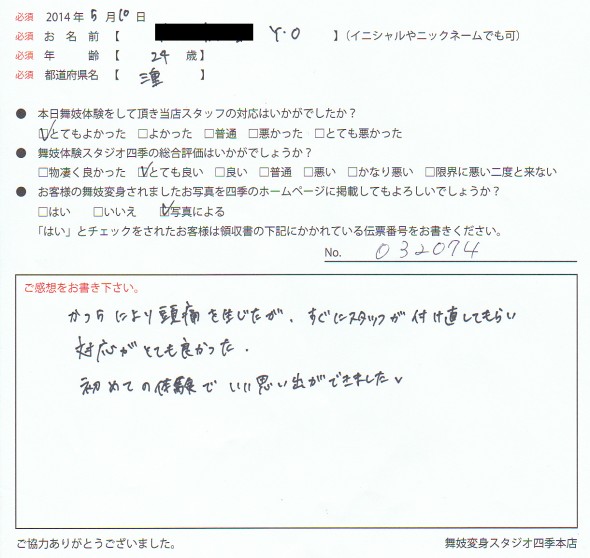 必須 2014 年 5 月 10 日
必須 お 名 前 【 Y.O 】(イニシャルやニックネームでも可)
必須 年 齢 【 24 歳】
必須 都道府県名 【 三重 】
● 本日舞妓体験をして頂き当店スタッフの対応はいかがでしたか?
☑とてもよかった □よかった □普通 □悪かった □とても悪かった
● 舞妓体験スタジオ四季の総合評価はいかがでしょうか?
□物凄く良かった ☑とても良い □良い □普通 □悪い □かなり悪い □限界に悪い二度と来ない
● お客様の舞妓変身されましたお写真を四季のホームページに掲載してもよろしいでしょうか?
□はい □いいえ ☑写真による
「はい」とチェックをされたお客様は領収書の下記にかかれている伝票番号をお書きください。
No. 032074
ご感想をお書き下さい。
かつらにより頭痛を生じたが、すぐにスタッフが付け直してもらい
対応がとても良かった.
初めての体験でいい思い出ができました
ご協力ありがとうございました。 舞妓変身スタジオ四季本店